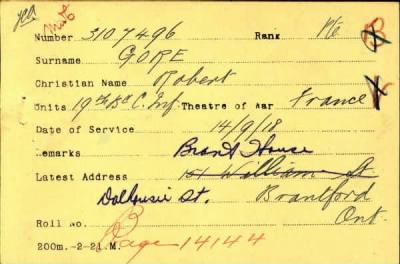 Number 3107496 Rank Pte B
Surname GORE
Christian Name Robert
Units 19th Bn C. Inf. Theatre of War France
Date of Service 14/9/18
Remarks Brant House
Latest Address 151 William St
Dalhousie St. Brantford
Ont.
Roll No. B
Page 14144
200m.-2-21. M.